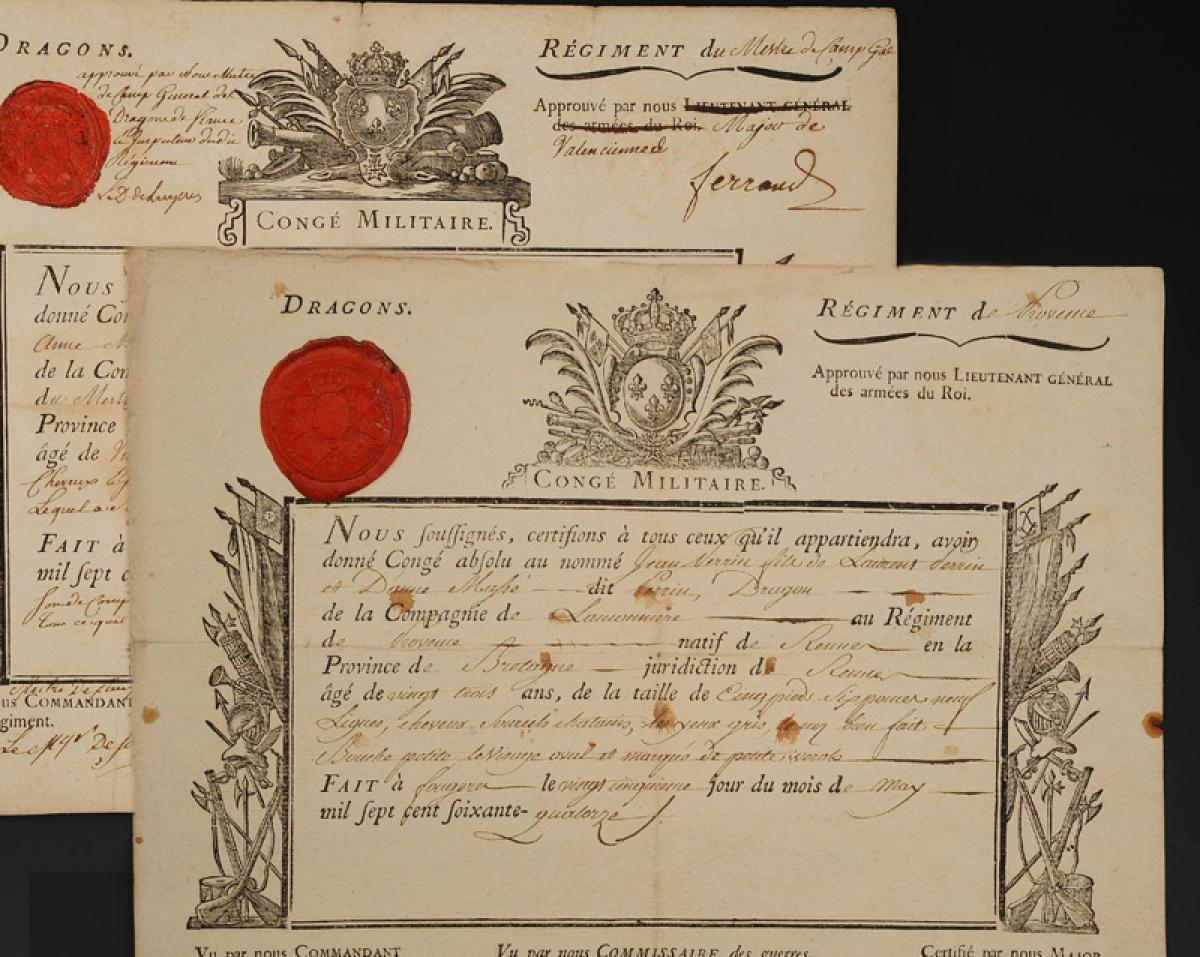 DRAGONS.
approuvé par Nous Mestre
de Camp General des
Dragons de france
Régiment
RÉGIMENT du Mestre de Camp Gal
Approuvé par nous LIEUTENANT GÉNÉRAL
des armées du Roi. Major de
Valenciennes
ferrand
CONGÉ MILITAIRE.
NOUS
donné Con
Anne
de la Com
du Mest
Province
âgé de
Cheveux
Lequel a
FAIT à
mil sept c
Mestre de Camp
us COMMANDANT
égiment.
DRAGONS.
RÉGIMENT de Provence
Approuvé par nous LIEUTENANT GÉNÉRAL
des armées du Roi.
CONGÉ MILITAIRE.
NOUS soussignés, certifions à tous ceux qu'il appartiendra, avoir
donné Congé absolu au nommé Jean Perrin fils de Laurent Perrin
et Dame Massé dit Perrin, Dragon
de la Compagnie de au Régiment
de Provence natif de Rennes en la
Province de Bretagne juridiction de Rennes
âgé de vingt trois ans, de la taille de Cinq pieds Six pouces neuf
Lignes, cheveux, Sourcils chatains, les yeux gris, le nez bien fait
Bouche petite le Visage oval et marqué de petite verole
FAIT à fougeres le vingt cinquieme jour du mois de May
mil sept cent soixante-quatorze
Vu par nous COMMANDANT
Vu par nous COMMISSAIRE des guerres
Certifié par nous MAJOR